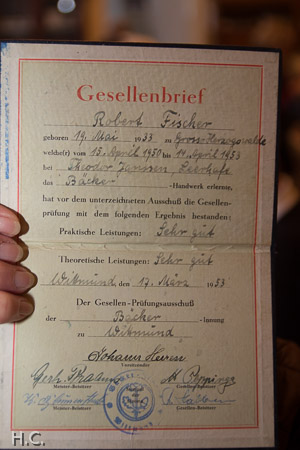 Gesellenbrief
Robert Fischer
geboren 19. Mai 1933 zu Gross-Herzogswalde
welche(r) vom 15. April 1950 bis 14. April 1953
bei Theodor Janssen, Leerhafe
das Bäcker -Handwerk erlernte,
hat vor dem unterzeichneten Ausschuß die Gesellen-
prüfung mit dem folgenden Ergebnis bestanden:
Praktische Leistungen: Sehr gut
Theoretische Leistungen: Sehr gut
Wittmund, den 17. März 1953
Der Gesellen-Prüfungsausschuß
der Bäcker -innung
zu Wittmund
Johann
Vorsitzender
Gerh.
Meister-Beisitzer Gesellen-Beisitzer
Meister-Beisitzer Gesellen-Beisitzer
H.C.